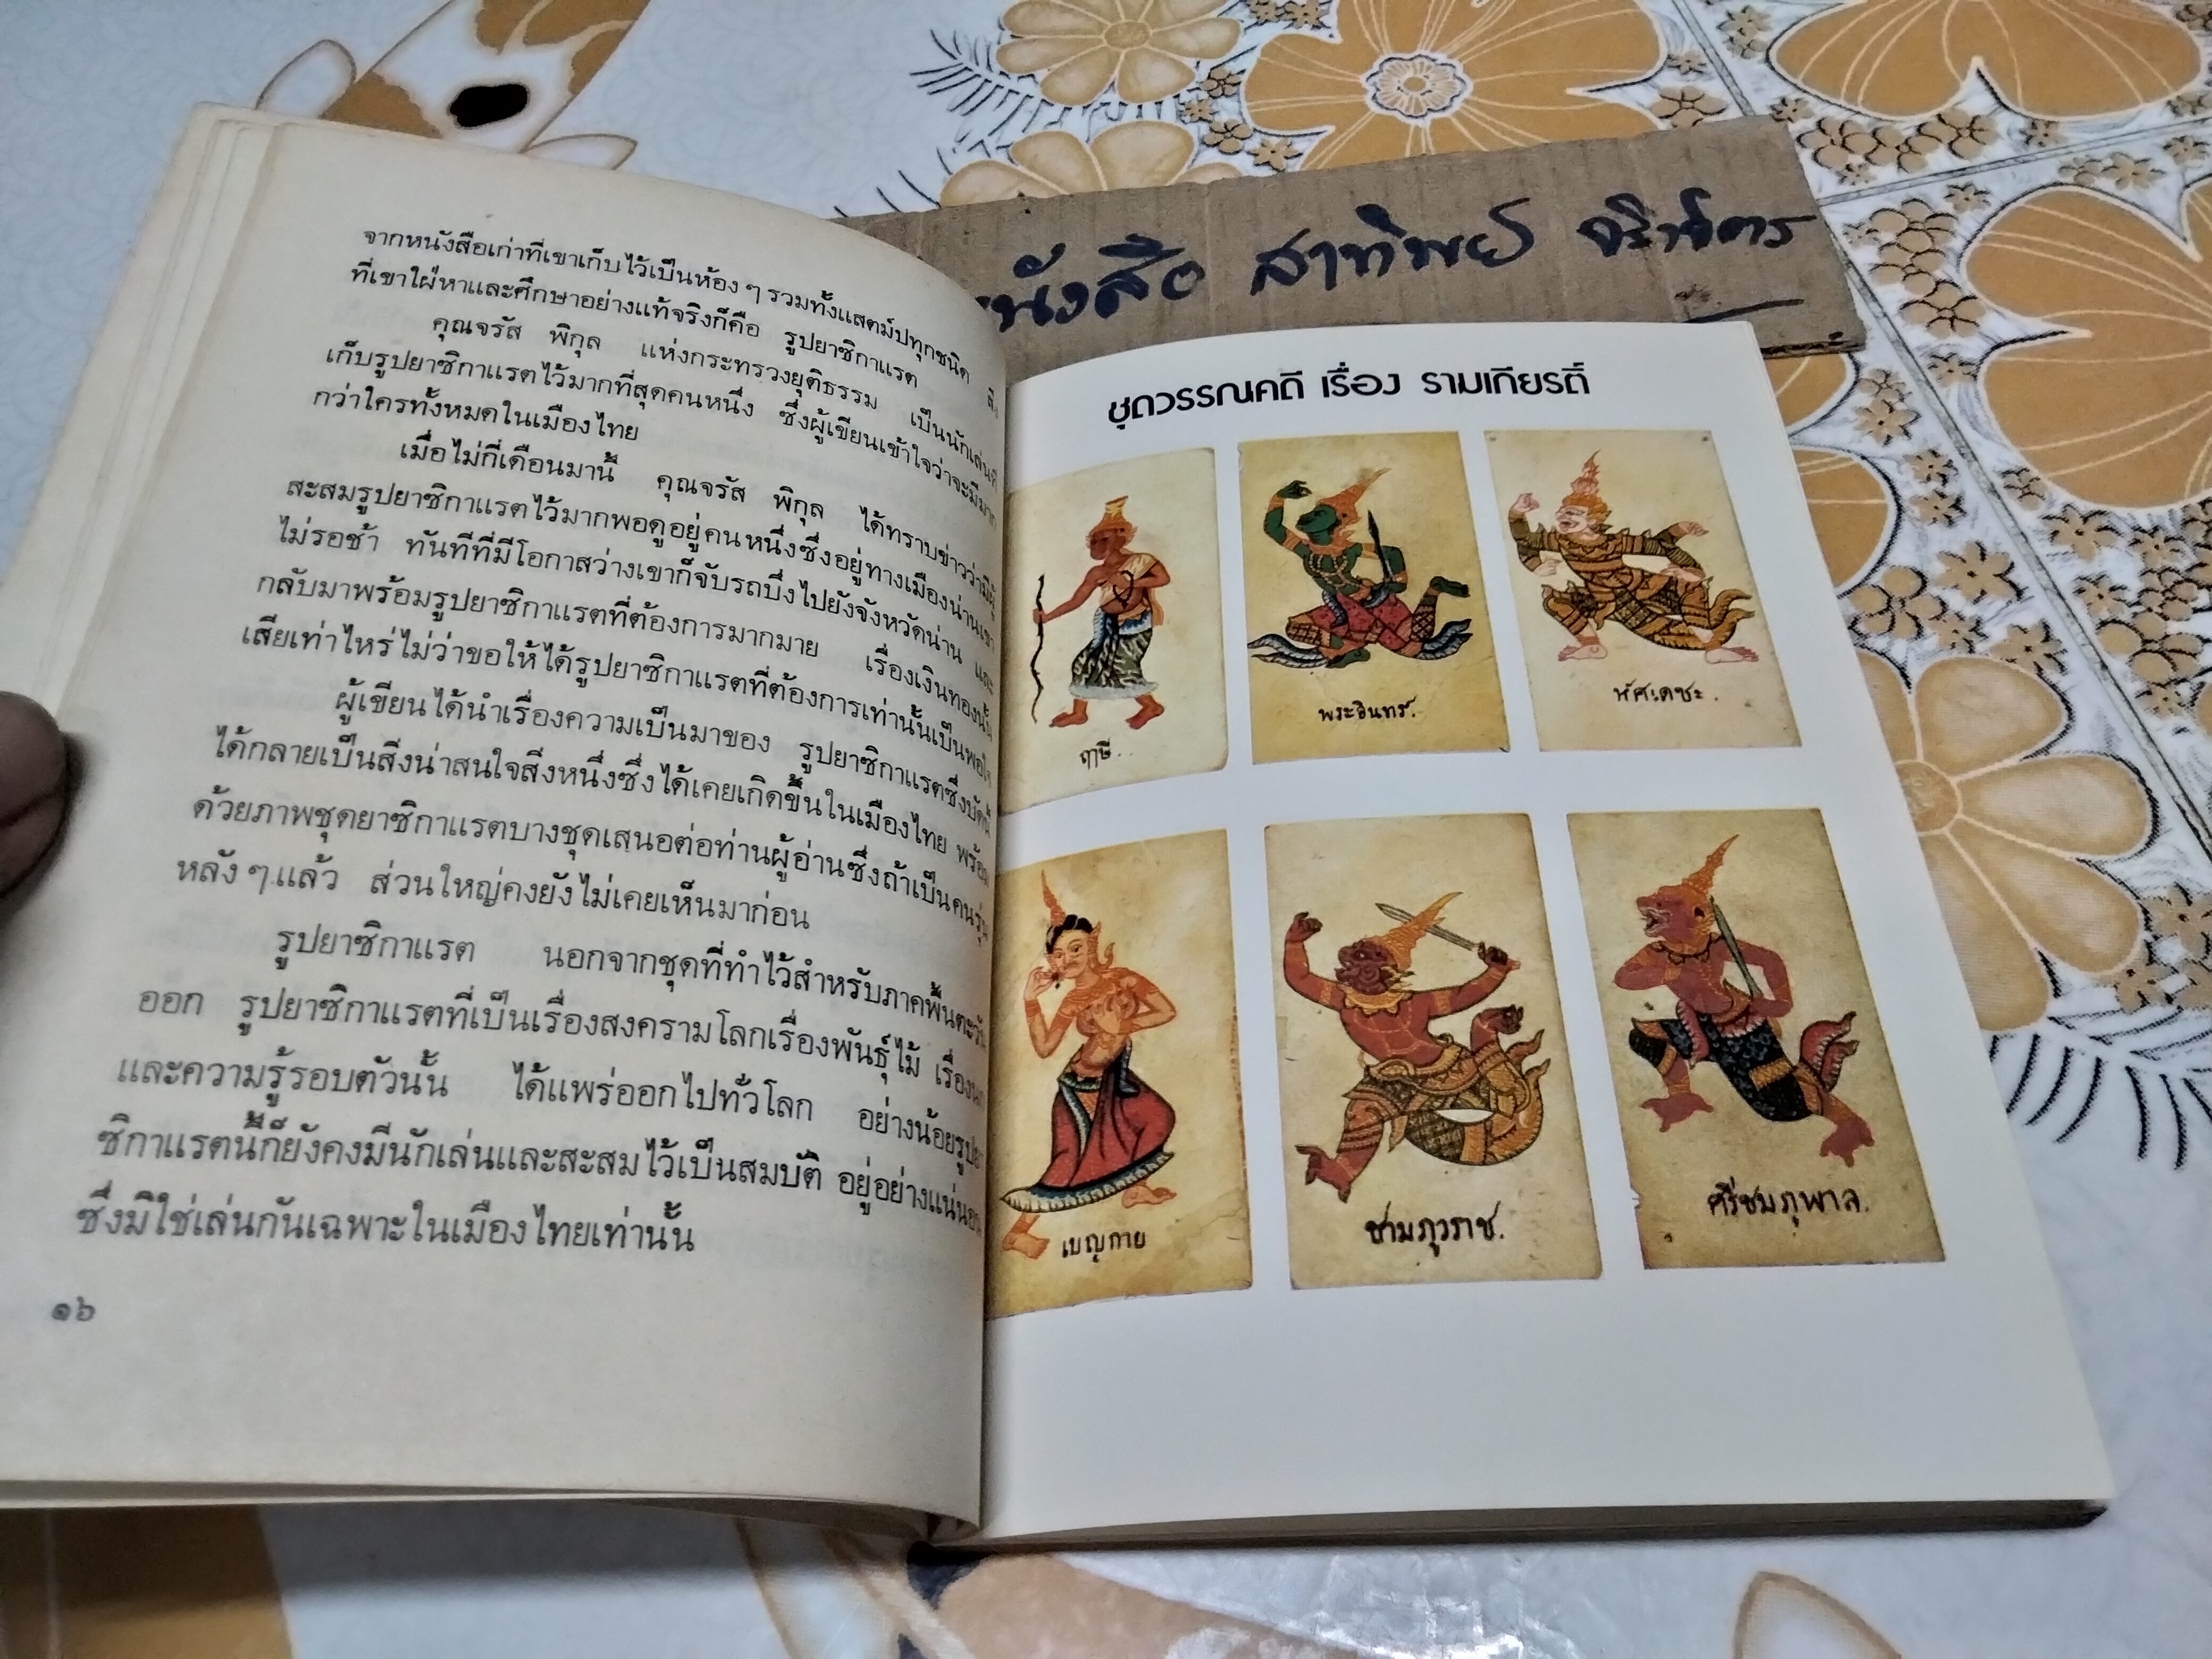 จากหนังสือเก่าที่เขาเก็บไว้เป็นห้อง ๆ รวมทั้งแสตมป์ทุกชนิด
ที่เขาใฝ่หาและศึกษาอย่างแท้จริงก็คือ รูปยาซิกาแรต
คุณจรัส พิกุล แห่งกระทรวงยุติธรรม เป็นนักเล่นที่
เก็บรูปยาซิกาแรตไว้มากที่สุดคนหนึ่ง ซึ่งผู้เขียนเข้าใจว่าจะมีมาก
กว่าใครทั้งหมดในเมืองไทย
เมื่อไม่กี่เดือนมานี้ คุณจรัส พิกุล ได้ทราบข่าวว่ามีผู้
สะสมรูปยาซิกาแรตไว้มากพอดูอยู่คนหนึ่งซึ่งอยู่ทางเมืองน่านเขา
ไม่รอช้า ทันทีที่มีโอกาสว่างเขาก็จับรถบึ่งไปยังจังหวัดน่าน และ
กลับมาพร้อมรูปยาซิกาแรตที่ต้องการมากมาย เรื่องเงินทองนั้น
เสียเท่าไหร่ไม่ว่าขอให้ได้รูปยาซิกาแรตที่ต้องการเท่านั้นเป็นพอใจ
ผู้เขียนได้นำเรื่องความเป็นมาของ รูปยาซิกาแรตซึ่งบัดนี้
ได้กลายเป็นสิ่งน่าสนใจสิ่งหนึ่งซึ่งได้เคยเกิดขึ้นในเมืองไทย พร้อม
ด้วยภาพชุดยาซิกาแรตบางชุดเสนอต่อท่านผู้อ่านซึ่งถ้าเป็นคนรุ่น
หลัง ๆ แล้ว ส่วนใหญ่คงยังไม่เคยเห็นมาก่อน
รูปยาซิกาแรต นอกจากชุดที่ทำไว้สำหรับภาคพื้นตะวัน
ออก รูปยาซิกาแรตที่เป็นเรื่องสงครามโลกเรื่องพันธุ์ไม้
และความรู้รอบตัวนั้น ได้แพร่ออกไปทั่วโลก อย่างน้อยรูปยา
ซิกาแรตนี้ก็ยังคงมีนักเล่นและสะสมไว้เป็นสมบัติ อยู่อย่างแน่นอน
ซึ่งมิใช่เล่นกันเฉพาะในเมืองไทยเท่านั้น
๑๖
หนังสือ สาทิพย์
ชุดวรรณคดี เรื่อง รามเกียรติ์
ฤาษี..
พระอินทร์.
หัศเดชะ.
เบญกาย
ชามภูวราช.
ศรีชมภูพาล.